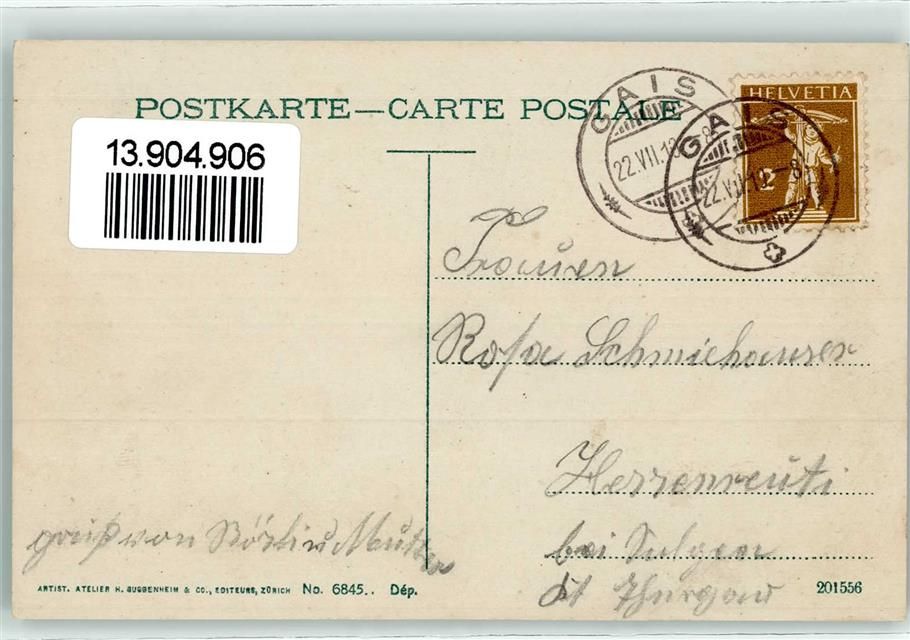 POSTKARTE—CARTE POSTALE
13.904.906
GAIS
22.VII.12 -8
GAIS
22.VII.12 -8
HELVETIA
2
Frauen
Rosa Schmiehauser
Herrenreuti
bei Sulgen
Kt Thurgau
gruß von Röslin Mutter
ARTIST. ATELIER H. GUGGENHEIM & CO., EDITEURS, ZÜRICH No. 6845.. Dép.
201556